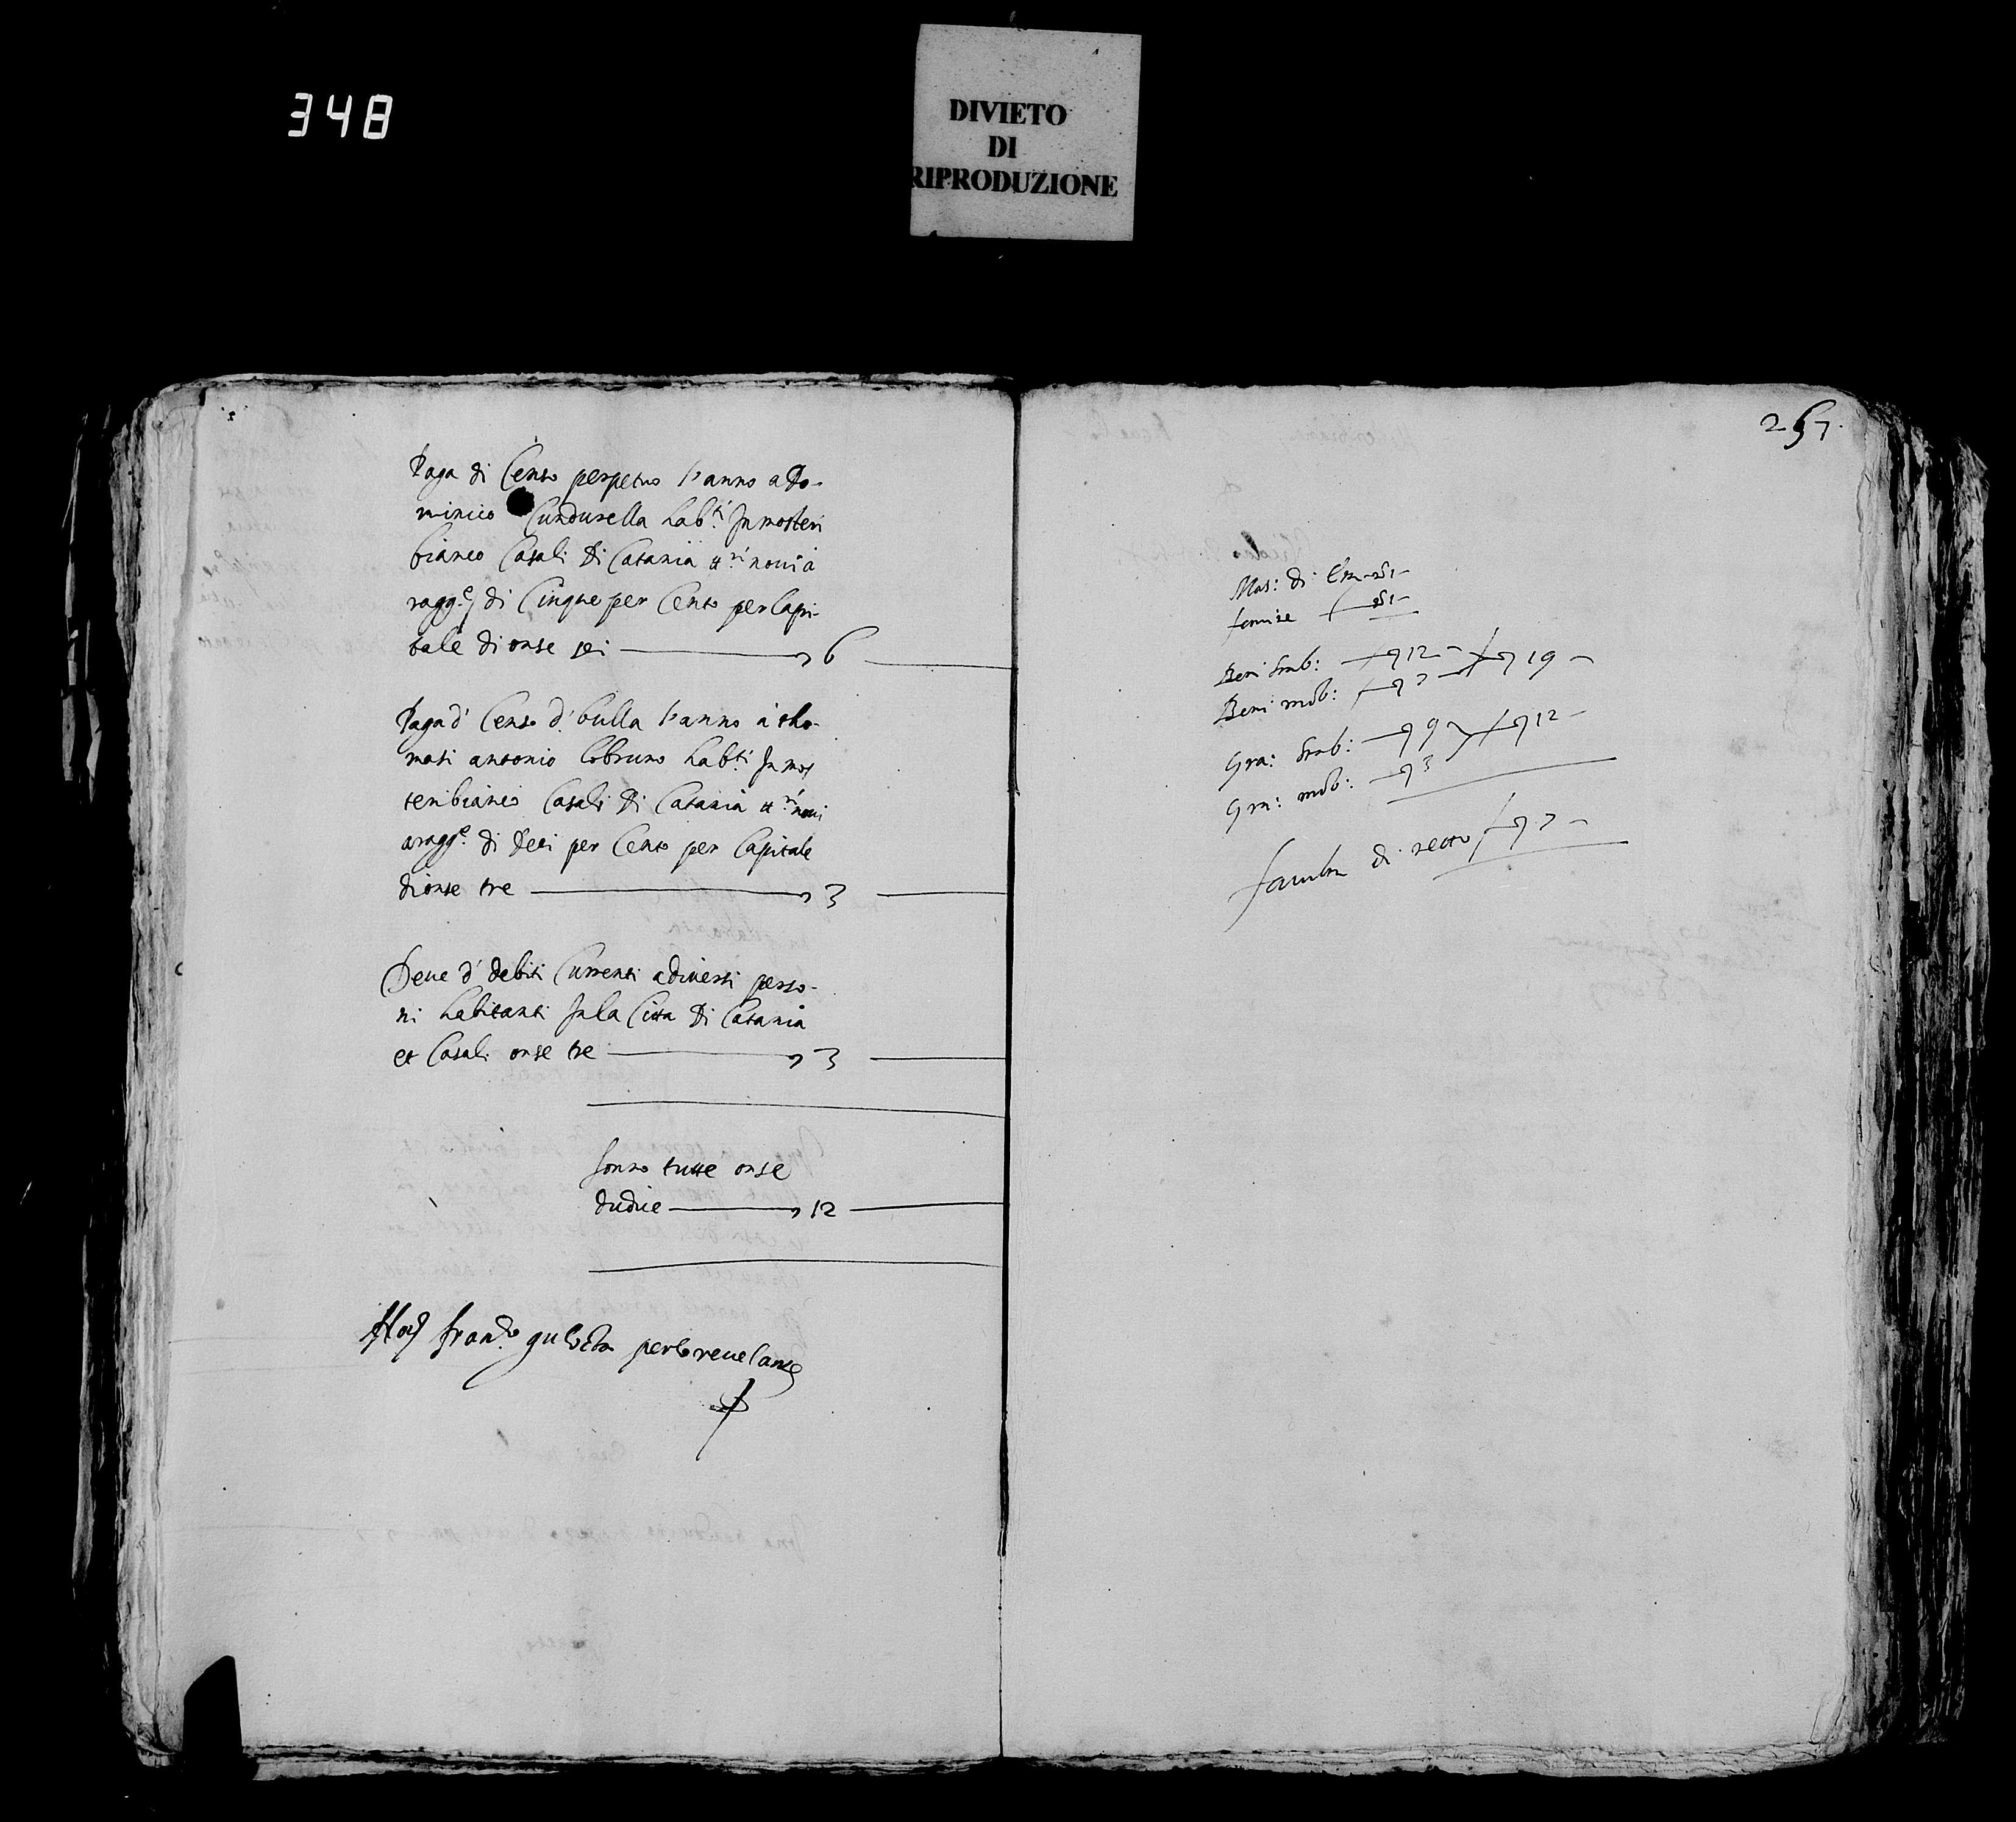 348
DIVIETO
DI
RIPRODUZIONE
Paga di Censo perpetuo l'anno a Do-
minico Cundurella habti In moster
bianco Casali di Catania ttrì novi a
ragge di Cinque per Cento per Capi-
tale di onse sei 6
Paga d' Censo d' bulla l'anno a tho-
masi antonio lobruno habti In mos
teribianco Casali di Catania ttrì novi
a ragge di deci per Cento per Capitale
di onse tre 3
Deve d' debiti Currenti a diversi perso-
ni habitanti In la Citta di Catania
et Casali onse tre 3
sonno tutte onse
dudice 12
franco per lo revelante
257.
Mas: di
Beni Imb: 12 19
Beni mob: 7
Gra: Imb: 9 12
Gra: mob: 3
di netto 7